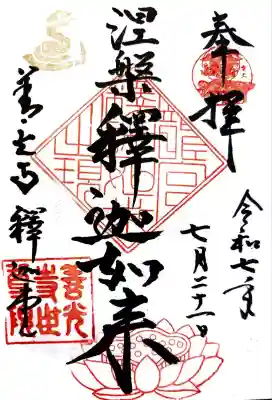 奉拝
令和七年
七月二十一日
涅槃釋迦如来
善光寺 釋迦堂